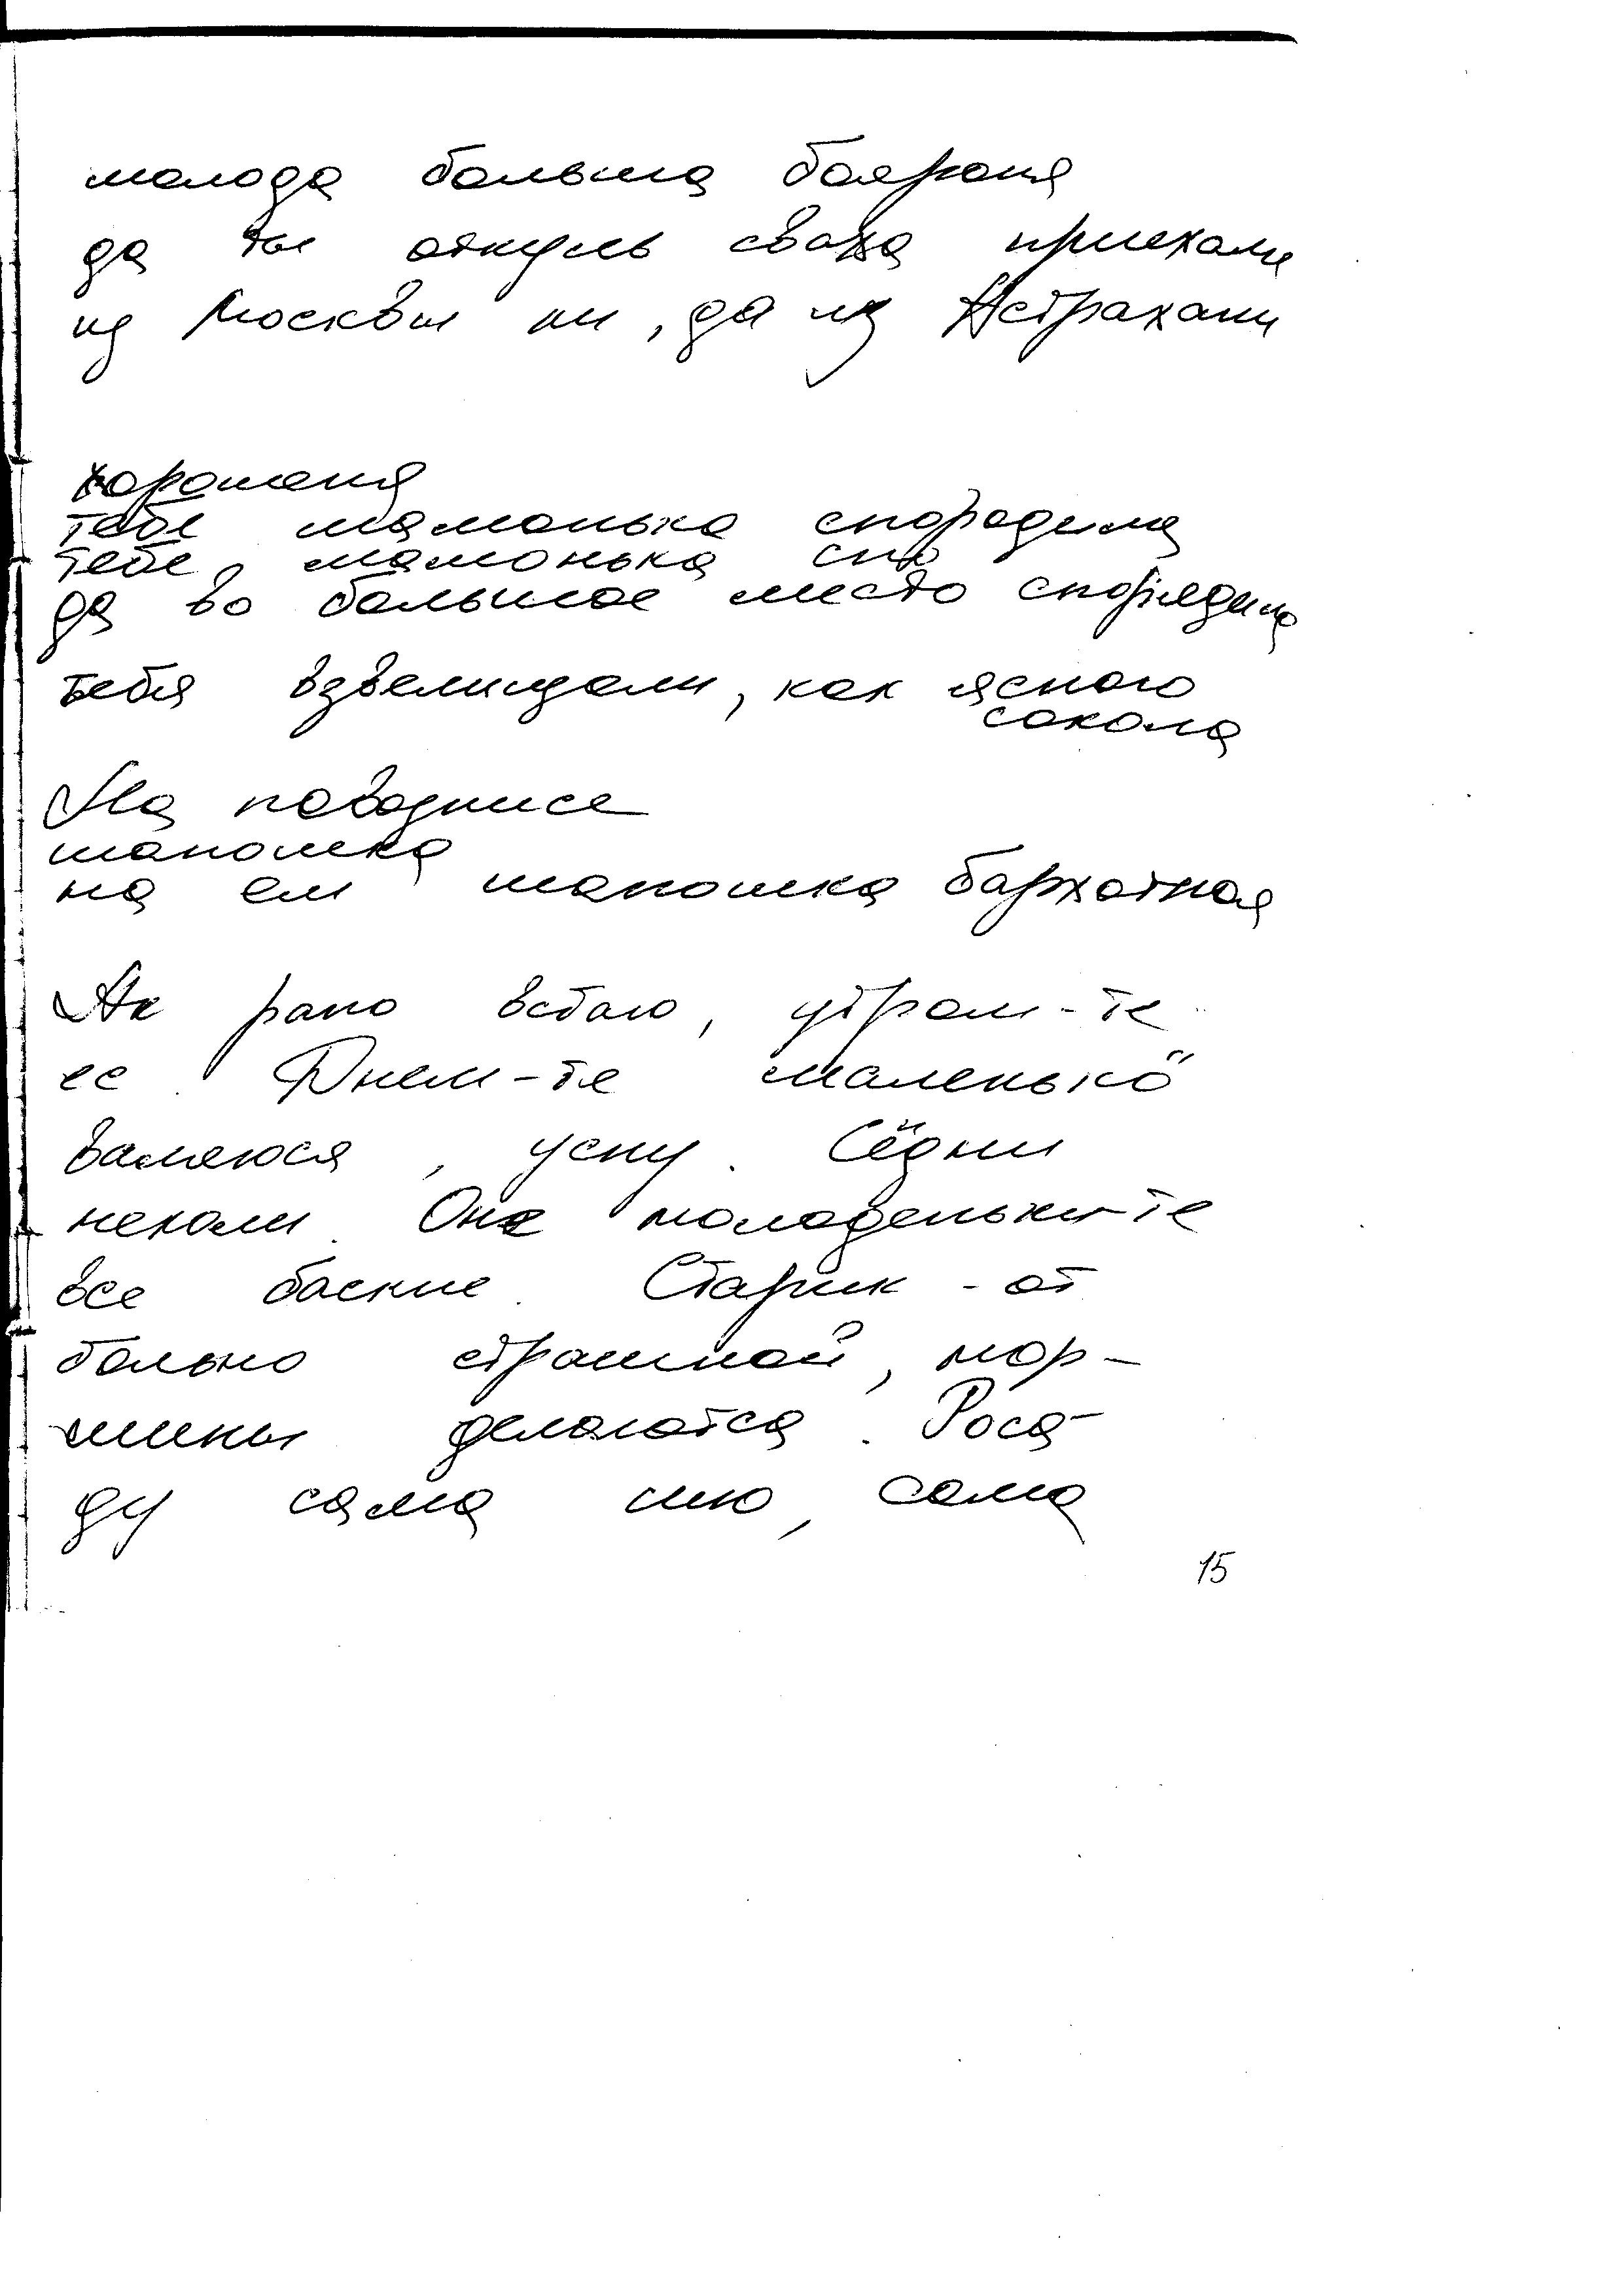 молода больша бояроня
да ты откуль сваха приехали
из Москвы ли, да из Астрахани
хорошеня
тебе мамонька спородила
тебе мамонька спо
да во большое место спорядила
тебя взвелицали, как ясного
сокола
На поводнисе
шапошка
на ем шапошка бархатная
Ак рано встаю, утром-те
ес. Днем-те маленькё
валяюся, усну. Сёдни
нехали. Оне молоденьки-те
все баские. Старик-от
больно страшной, мор-
шины делаютса. Роса-
ду сама сию, сама
15